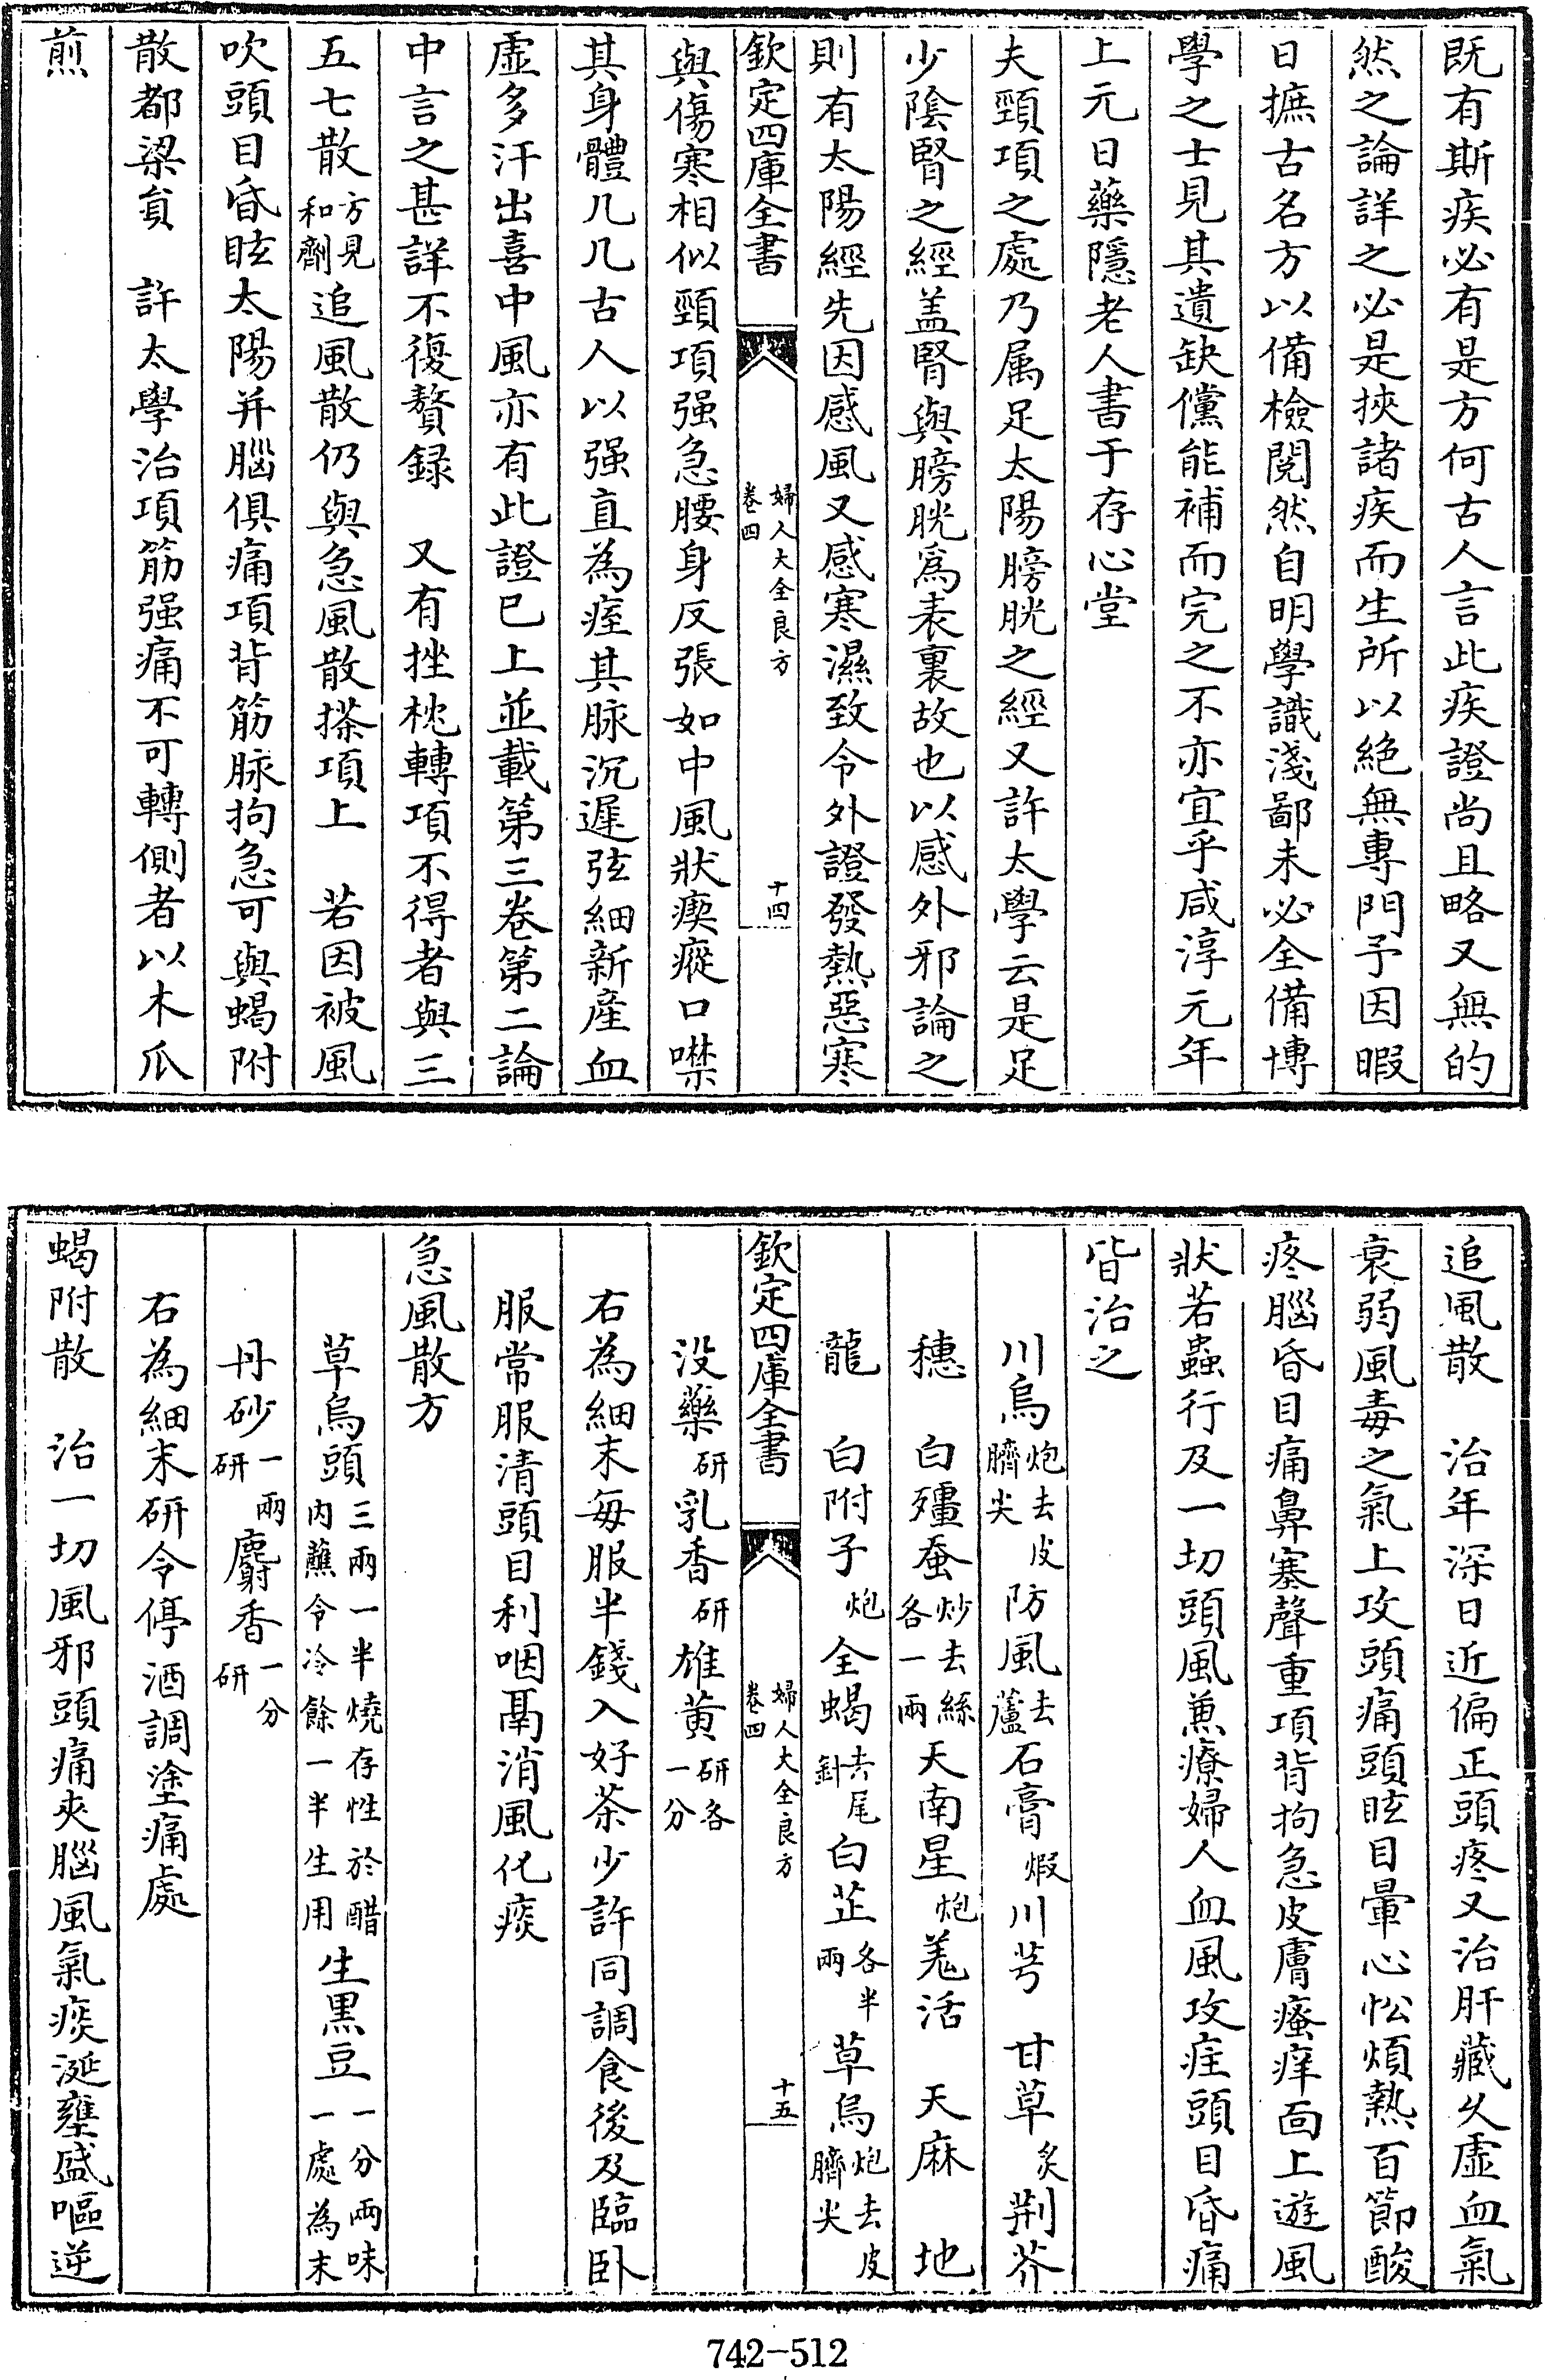 既有斯疾必有是方何古人言此疾證尚且略又無的
然之論詳之必是挾諸疾而生所以絶無專門予因暇
日摭古名方以備檢閱然自明學識淺鄙未必全備博
學之士見其遺缺儻能補而完之不亦宜乎咸淳元年
上元日藥隱老人書于存心堂
夫頸項之處乃属足太陽膀胱之經又許太學云是足
少陰腎之經盖腎與膀胱爲表裏故也以感外邪論之
則有太陽經先因感風又感寒濕致令外證發熱惡寒
欽定四庫全書
婦人大全良方
卷四
十四
與傷寒相似頸項强急腰身反張如中風狀瘈瘲口噤
其身體几几古人以强直為痓其脉沉遲弦細新産血
虚多汗出喜中風亦有此證已上並載第三卷第二論
中言之甚詳不復贅録　又有挫枕轉項不得者與三
五七散方見和劑追風散仍與急風散搽項上　若因被風
吹頭目昏眩太陽并腦俱痛項背筋脉拘急可與蝎附
散都梁㒶　許太學治項筋强痛不可轉側者以木瓜
煎
追風散　治年深日近偏正頭疼又治肝藏久虛血氣
衰弱風毒之氣上攻頭痛頭眩目暈心忪煩熱百節酸
疼腦昏目痛鼻塞聲重項背拘急皮膚瘙痒面上遊風
狀若蟲行及一切頭風兼療婦人血風攻疰頭目昏痛
皆治之
川烏炮去皮臍尖防風去蘆石膏煆川芎　甘草炙荆芥
穗　白殭蚕炒去絲各一兩天南星炮羗活　天麻　地
龍　白附子炮全蝎去尾針白芷各半兩草烏炮去皮臍尖
欽定四庫全書
婦人大全良方
卷四
十五
没藥研乳香研雄黄研各一分
右為細末每服半錢入好茶少許同調食後及臨卧
服常服清頭目利咽鬲消風化痰
急風散方
草烏頭三兩一半燒存性於醋内蘸令冷餘一半生用生黒豆一分兩味一處為末
丹砂一兩研麝香一分研
右為細末研令停酒調塗痛處
蝎附散　治一切風邪頭痛夾腦風氣痰涎壅盛嘔逆
742-512